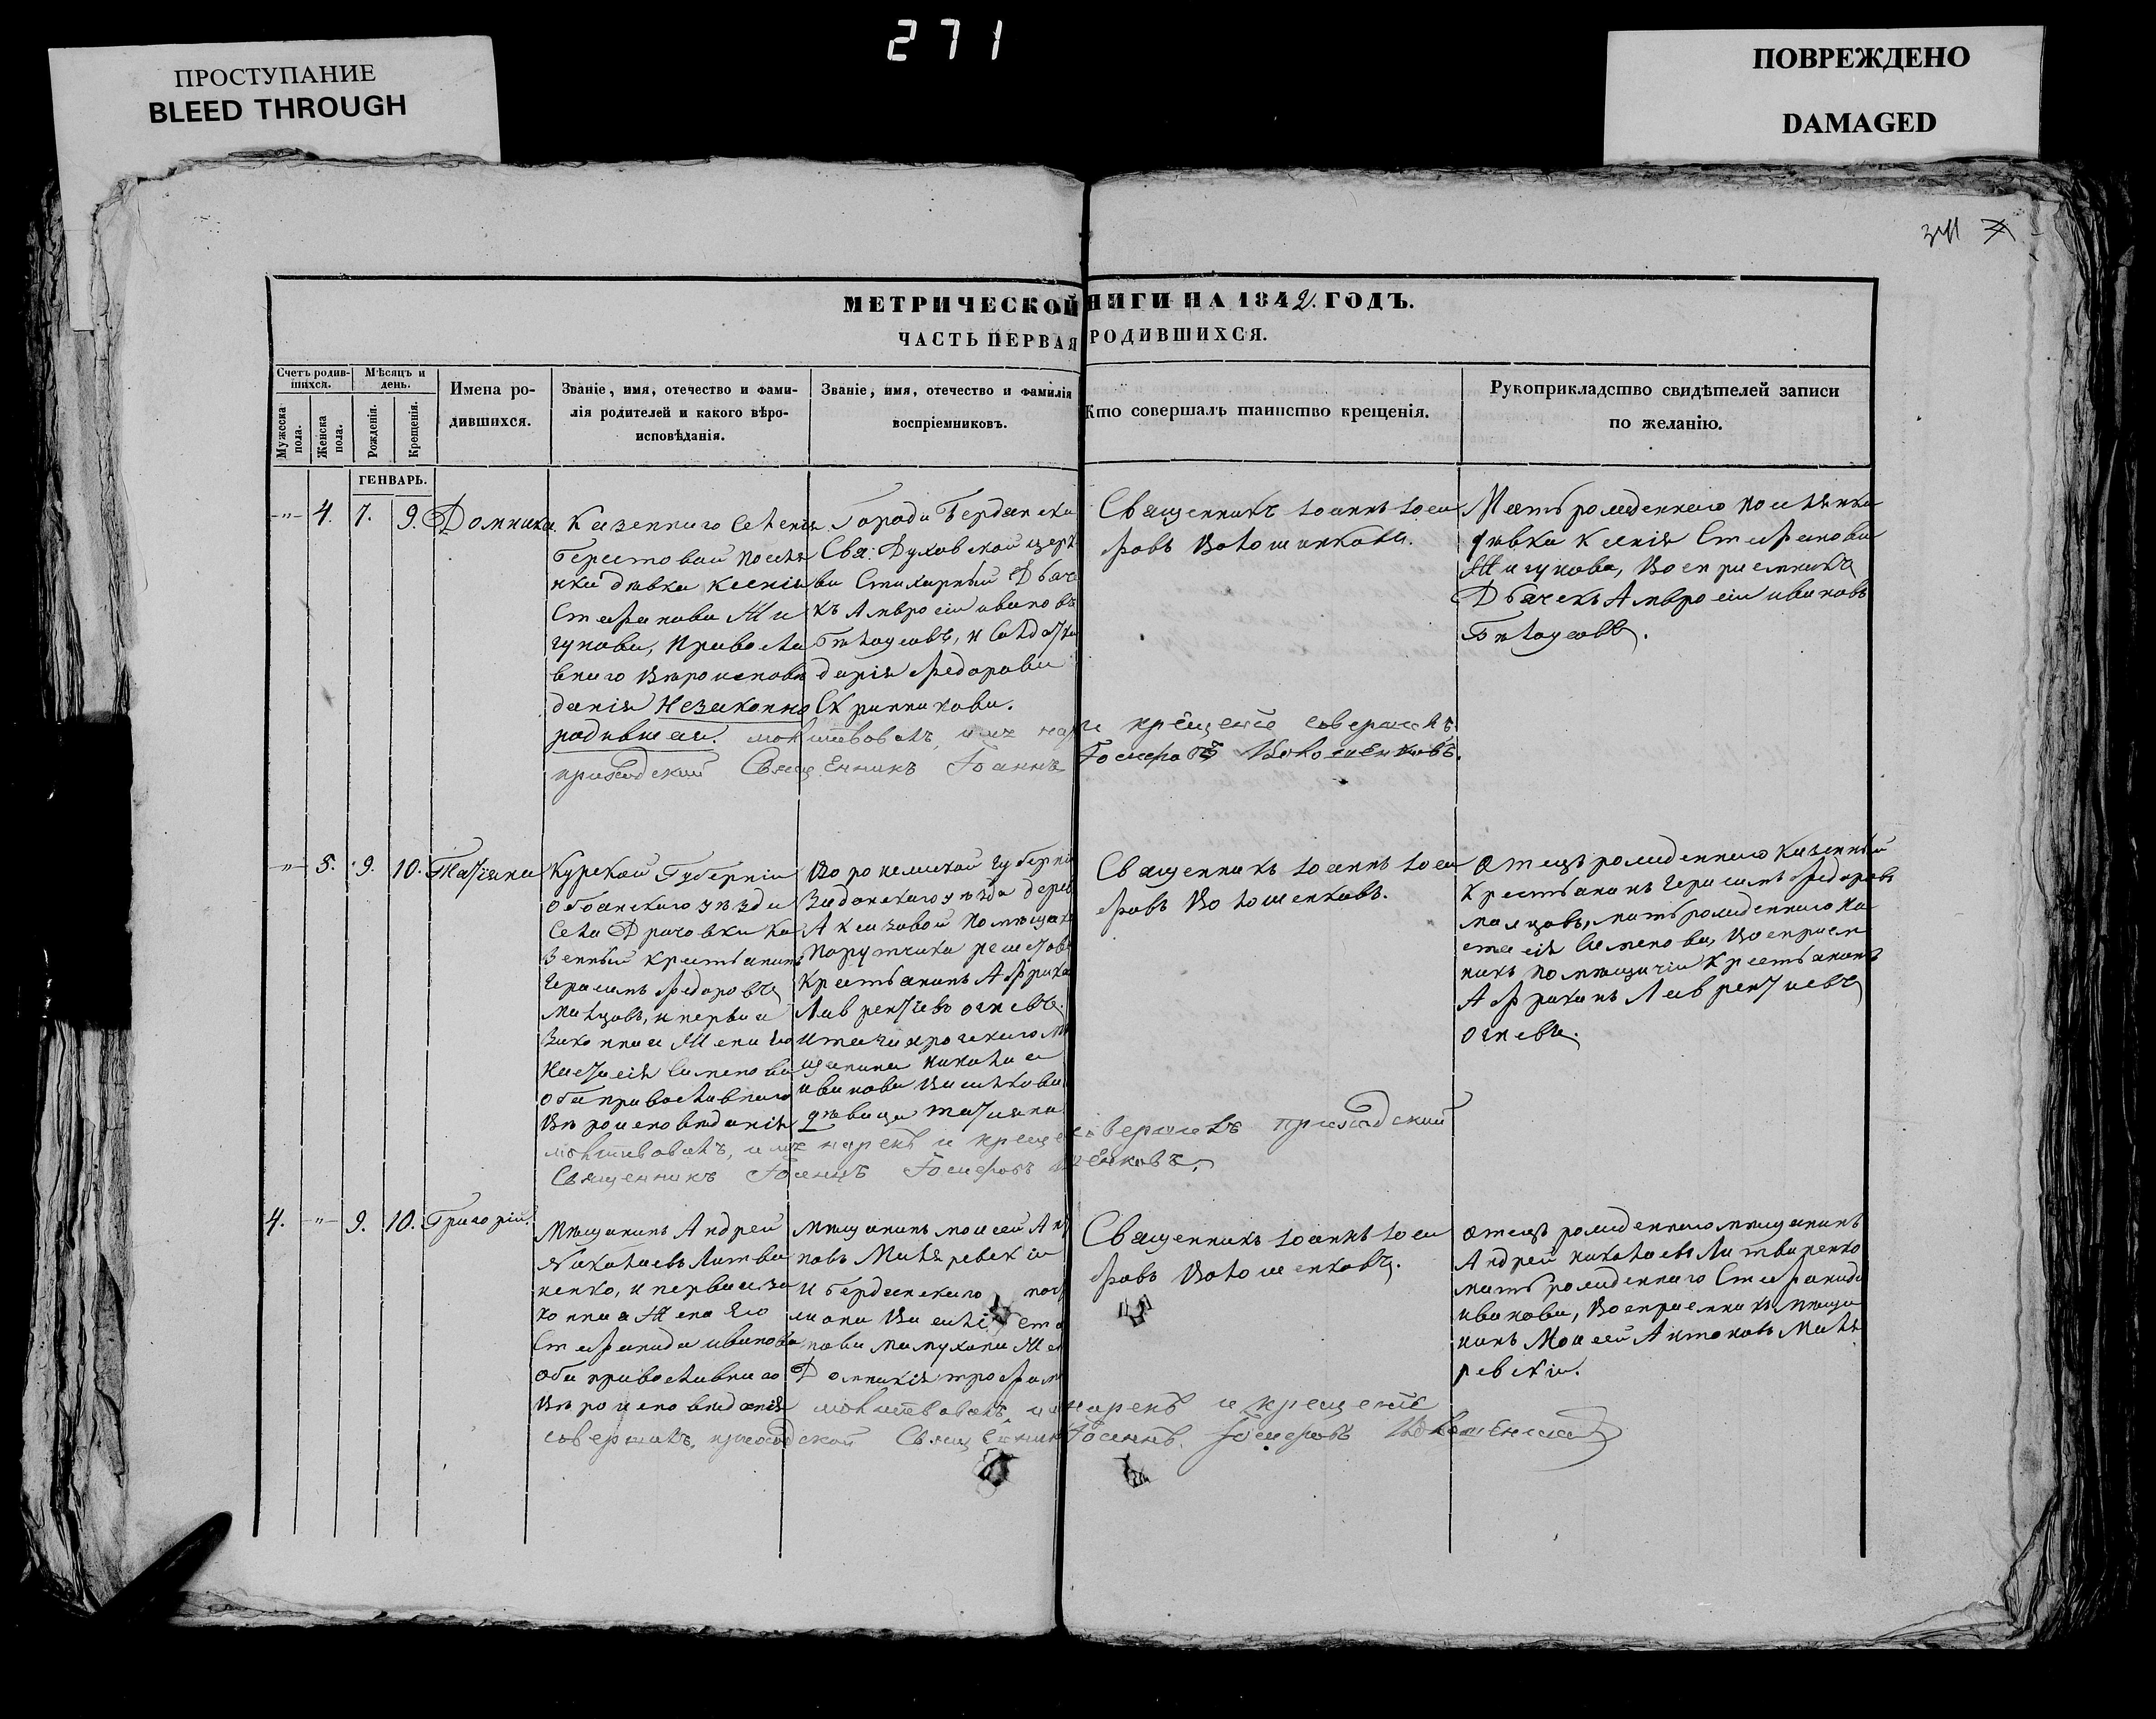 271
ПРОСТУПАНИЕ
BLEED THROUGH
ПОВРЕЖДЕНО
DAMAGED
МЕТРИЧЕСКОЙ НИГИ НА 1842. ГОДЪ.
ЧАСТЬ ПЕРВАЯ РОДИВШИХСЯ.
Счетъ родив-
шихся.
Мужеска
пола.
Женска
пола.
Мѣсяцъ и
день.
Рожденія.
Крещенія.
Имена ро-
дившихся.
Званіе, имя, отечество и фами-
лія родителей и какого вѣро-
исповѣданія.
Званіе, имя, отечество и фамилія
воспріемниковъ.
Кто совершалъ таинство крещенія.
Рукоприкладство свидѣтелей записи
по желанію.
ГЕНВАРЬ.
-"- 4. 7. 9. Домника.
Казеннаго Селенія
Берестовой поселя
нка дѣвка Ксенія
Стефанова Жи
гунова, Правосла
внаго Вѣроисповѣ
данія Незаконно
родившая.
Города Бердянска
Свя: Духовской церк
ви Стихарный Дьяче
къ Амвросій ивановъ
Бѣлоусовъ, и Солдатка
дарія Федорова
Скрипникова.
Священникъ Іоаннъ Іоси
фовъ Волошенковъ.
Мать рожденнаго поселянка
дѣвка Ксенія Стефанова
Жигунова, Восприемникъ
Дьячекъ Амвросій ивановъ
Бѣлоусовъ.
молитвовалъ, имя наре крещеніе совершилъ
приходский Священникъ Іоаннъ Іосифовъ Волошенковъ.
-"- 5. 9. 10. Татіяна
Курской Губерніи
Обоянскаго уѣзда
Села Драчовки Ка
зенный крестьянинъ
Герасимъ Федоровъ
Малцовъ, и первая
Законная Жена Его
Настасія Симонова
Оба православнаго
Вѣроисповѣданія
Воронежской губерніи
Задонскаго уѣзда дерев
Аксизовой помѣщика
Порутчика
Крестьянинъ Африка
Лаврентьевъ огневъ
мѣ
щанина николая
иванова Василкова
дѣвица татияна
Священникъ Іоаннъ Іоси
фовъ Волошенковъ.
Отецъ рожденнаго Казенный
Крестьянинъ Герасимъ Федоровъ
малцовъ, мать рожденнаго На
стасія Симонова, Восприем
никъ помѣщичій Крестьянинъ
Африканъ Лаврентиевъ
Огневъ.
молитвовалъ, имя нарекъ и креще совершилъ приходский
Священникъ Іоаннъ Іосифовъ шенковъ.
4. -"- 9. 10. Григорій.
Мѣщанинъ Андрей
Николаевъ Литви
ненко, и первая за
конная Жена Его
Стефанида иванова
Оба православнаго
Вѣроисповѣданія
Мѣщанинъ моисей Ан
повъ Маляревскій
и Бердянскаго
Домникія трофим
Священникъ Іоаннъ Іоси
фовъ Волошенковъ.
Отецъ рожденнаго мѣщанинъ
Андрей николаевъ Литвиненко
мать рожденнаго Стефанида
иванова, Восприемникъ мѣща
нинъ Моисей Антоновъ Маля
ревскій.
молитвовалъ, имя нарекъ и крещеніе
совершилъ, приходской Священникъ Іоаннъ Іосифовъ Волошенковъ